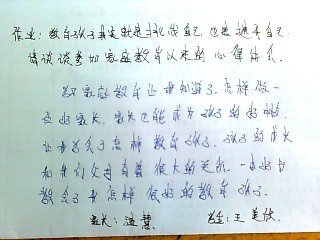 作业：教育孩子其实就是挑战自己，也是提高自己
请谈谈参加家庭教育以来的心得体会。
家庭教育让我知道了，怎样做一
名好家长，家长也能成为孩子的好朋友，
让我学会了怎样教育孩子，孩子的成长
和我们父母有着很大的关系，一本好书
教会了我怎样很好的教育孩子。
家长：慧 学生：王